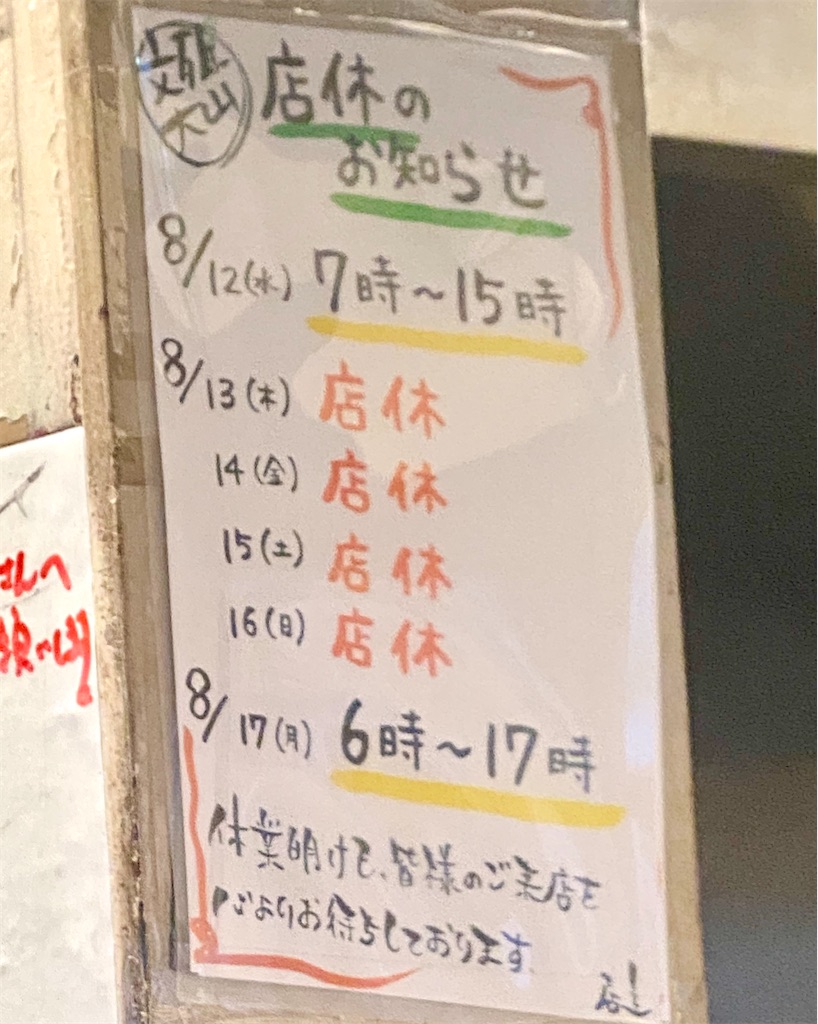 店休の
お知らせ
8/12(水) 7時~15時
8/13(木) 店休
14(金) 店休
15(土) 店休
16(日) 店休
8/17(月) 6時~17時
休業明けも、皆様のご来店を
心よりお待ちしております。
店主